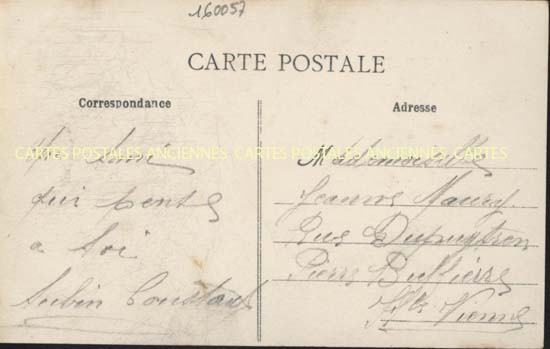 160057
CARTE POSTALE
Correspondance
Adresse
CARTES POSTALES ANCIENNES CARTES POSTALES ANCIENNES
qui pense
a toi
Aubin Constant
Mademoiselle
Jeanne Maury
Rue Dupuytren
Pierre Buffière
Hte Vienne